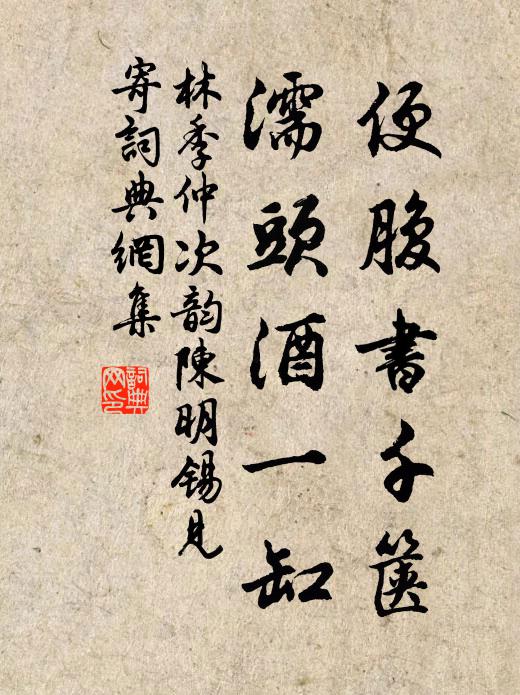 便腹書千篋
濡頭酒一缸
林季仲次韵陳明錫見
寄詞典網集
詞典網印